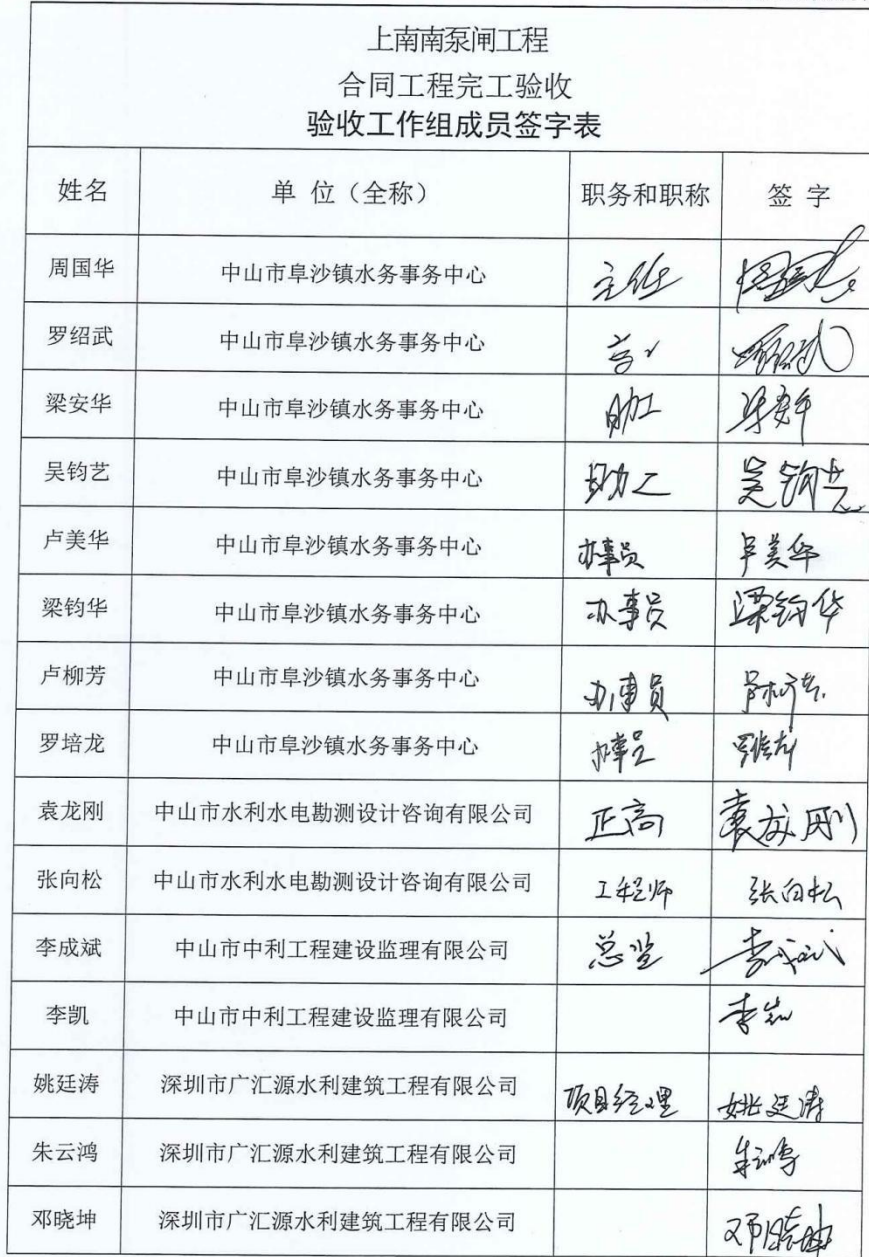 上南南泵闸工程
合同工程完工验收
验收工作组成员签字表
姓名 单 位（全称） 职务和职称 签 字
周国华 中山市阜沙镇水务事务中心 主任
罗绍武 中山市阜沙镇水务事务中心
梁安华 中山市阜沙镇水务事务中心 助工
吴钧艺 中山市阜沙镇水务事务中心 助工 吴钧艺
卢美华 中山市阜沙镇水务事务中心 办事员 卢美华
梁钧华 中山市阜沙镇水务事务中心 办事员 梁钧华
卢柳芳 中山市阜沙镇水务事务中心 办事员 卢柳芳
罗培龙 中山市阜沙镇水务事务中心 办事员 罗培龙
袁龙刚 中山市水利水电勘测设计咨询有限公司 正高 袁龙刚
张向松 中山市水利水电勘测设计咨询有限公司 工程师 张向松
李成斌 中山市中利工程建设监理有限公司 总监 李成斌
李凯 中山市中利工程建设监理有限公司 李凯
姚廷涛 深圳市广汇源水利建筑工程有限公司 项目经理 姚廷涛
朱云鸿 深圳市广汇源水利建筑工程有限公司 朱云鸿
邓晓坤 深圳市广汇源水利建筑工程有限公司 邓晓坤